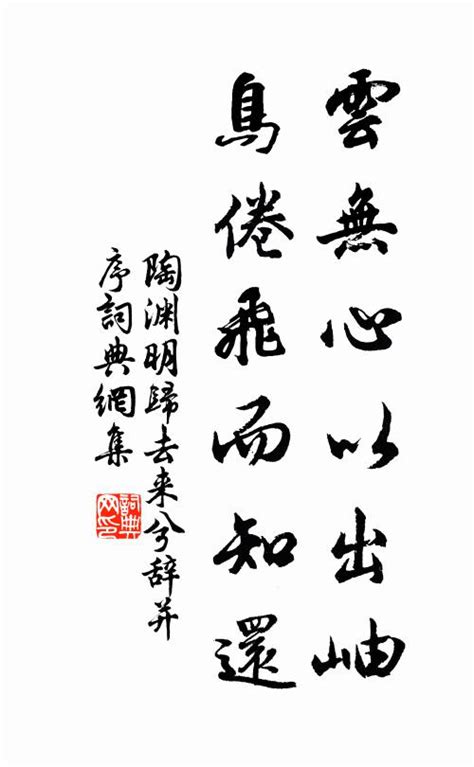 雲無心以出岫
鳥倦飛而知還
陶渊明歸去来兮辞并
序詞典網集
詞典
网印